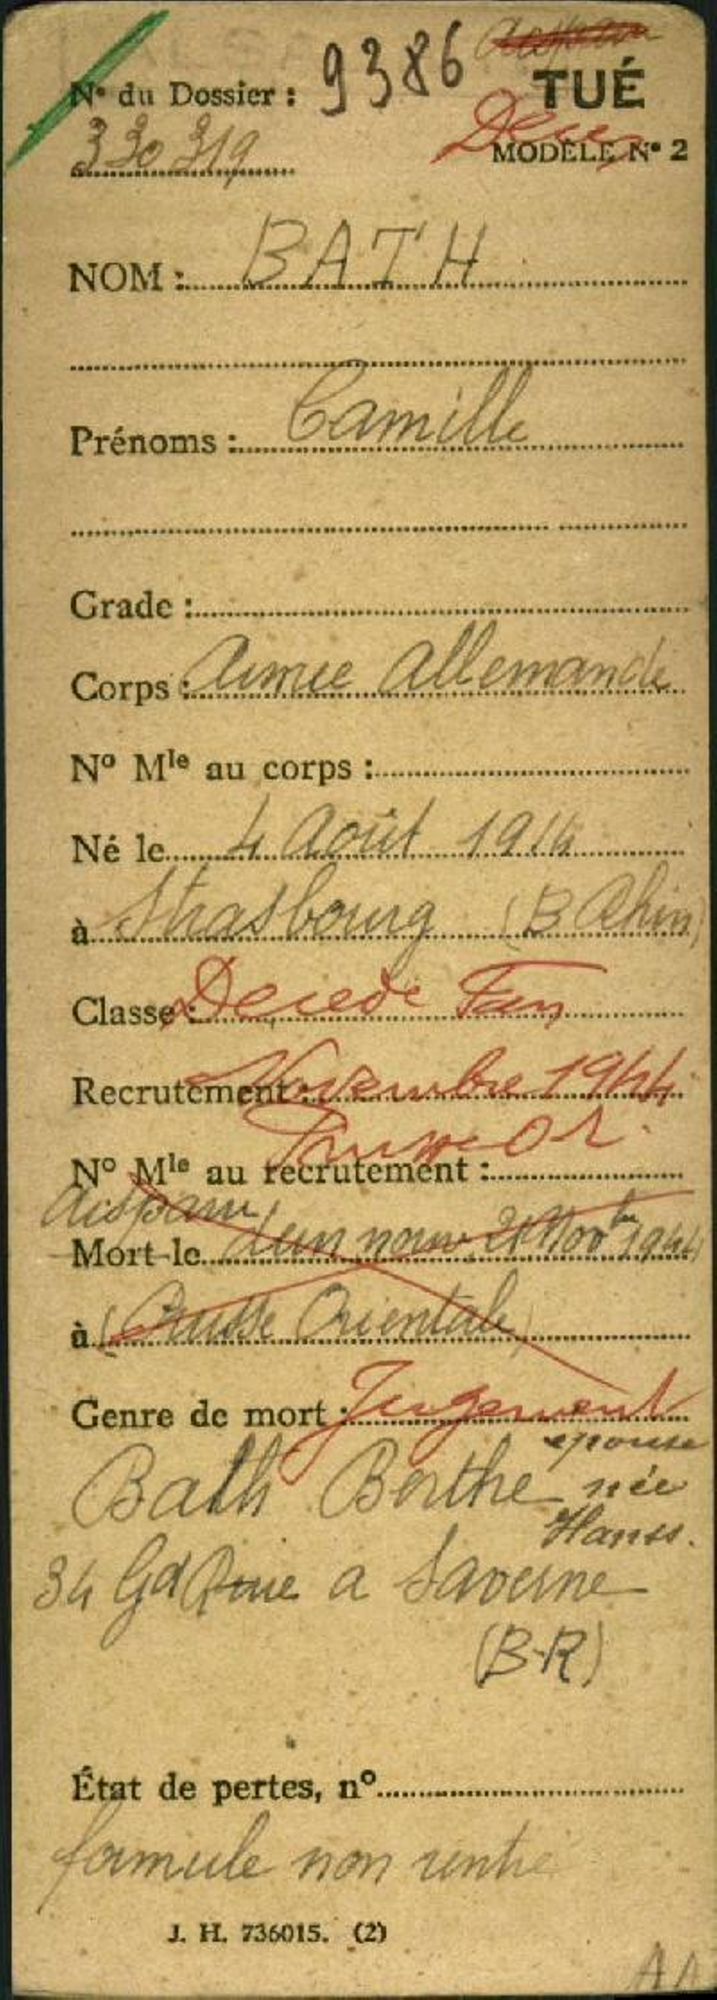 9386
TUÉ
N° du Dossier :
330 319
Deces
MODÈLE N° 2
NOM : BATH
Prénoms : Camille
Grade :
Corps : Armée Allemande
N° Mle au corps :
Né le 4 Août 1914
à Strasbourg (B Rhin)
Classe : Decede
Recrutement : Novembre 1944
N° Mle au recrutement :
disparu
Mort le 1944
à (Prusse Orientale)
Genre de mort : Jugement
épouse
Bath Berthe née
Hanss.
34 Gd Rue a Saverne
(B-R)
État de pertes, n°
formule non rentré
J. H. 736015. (2)